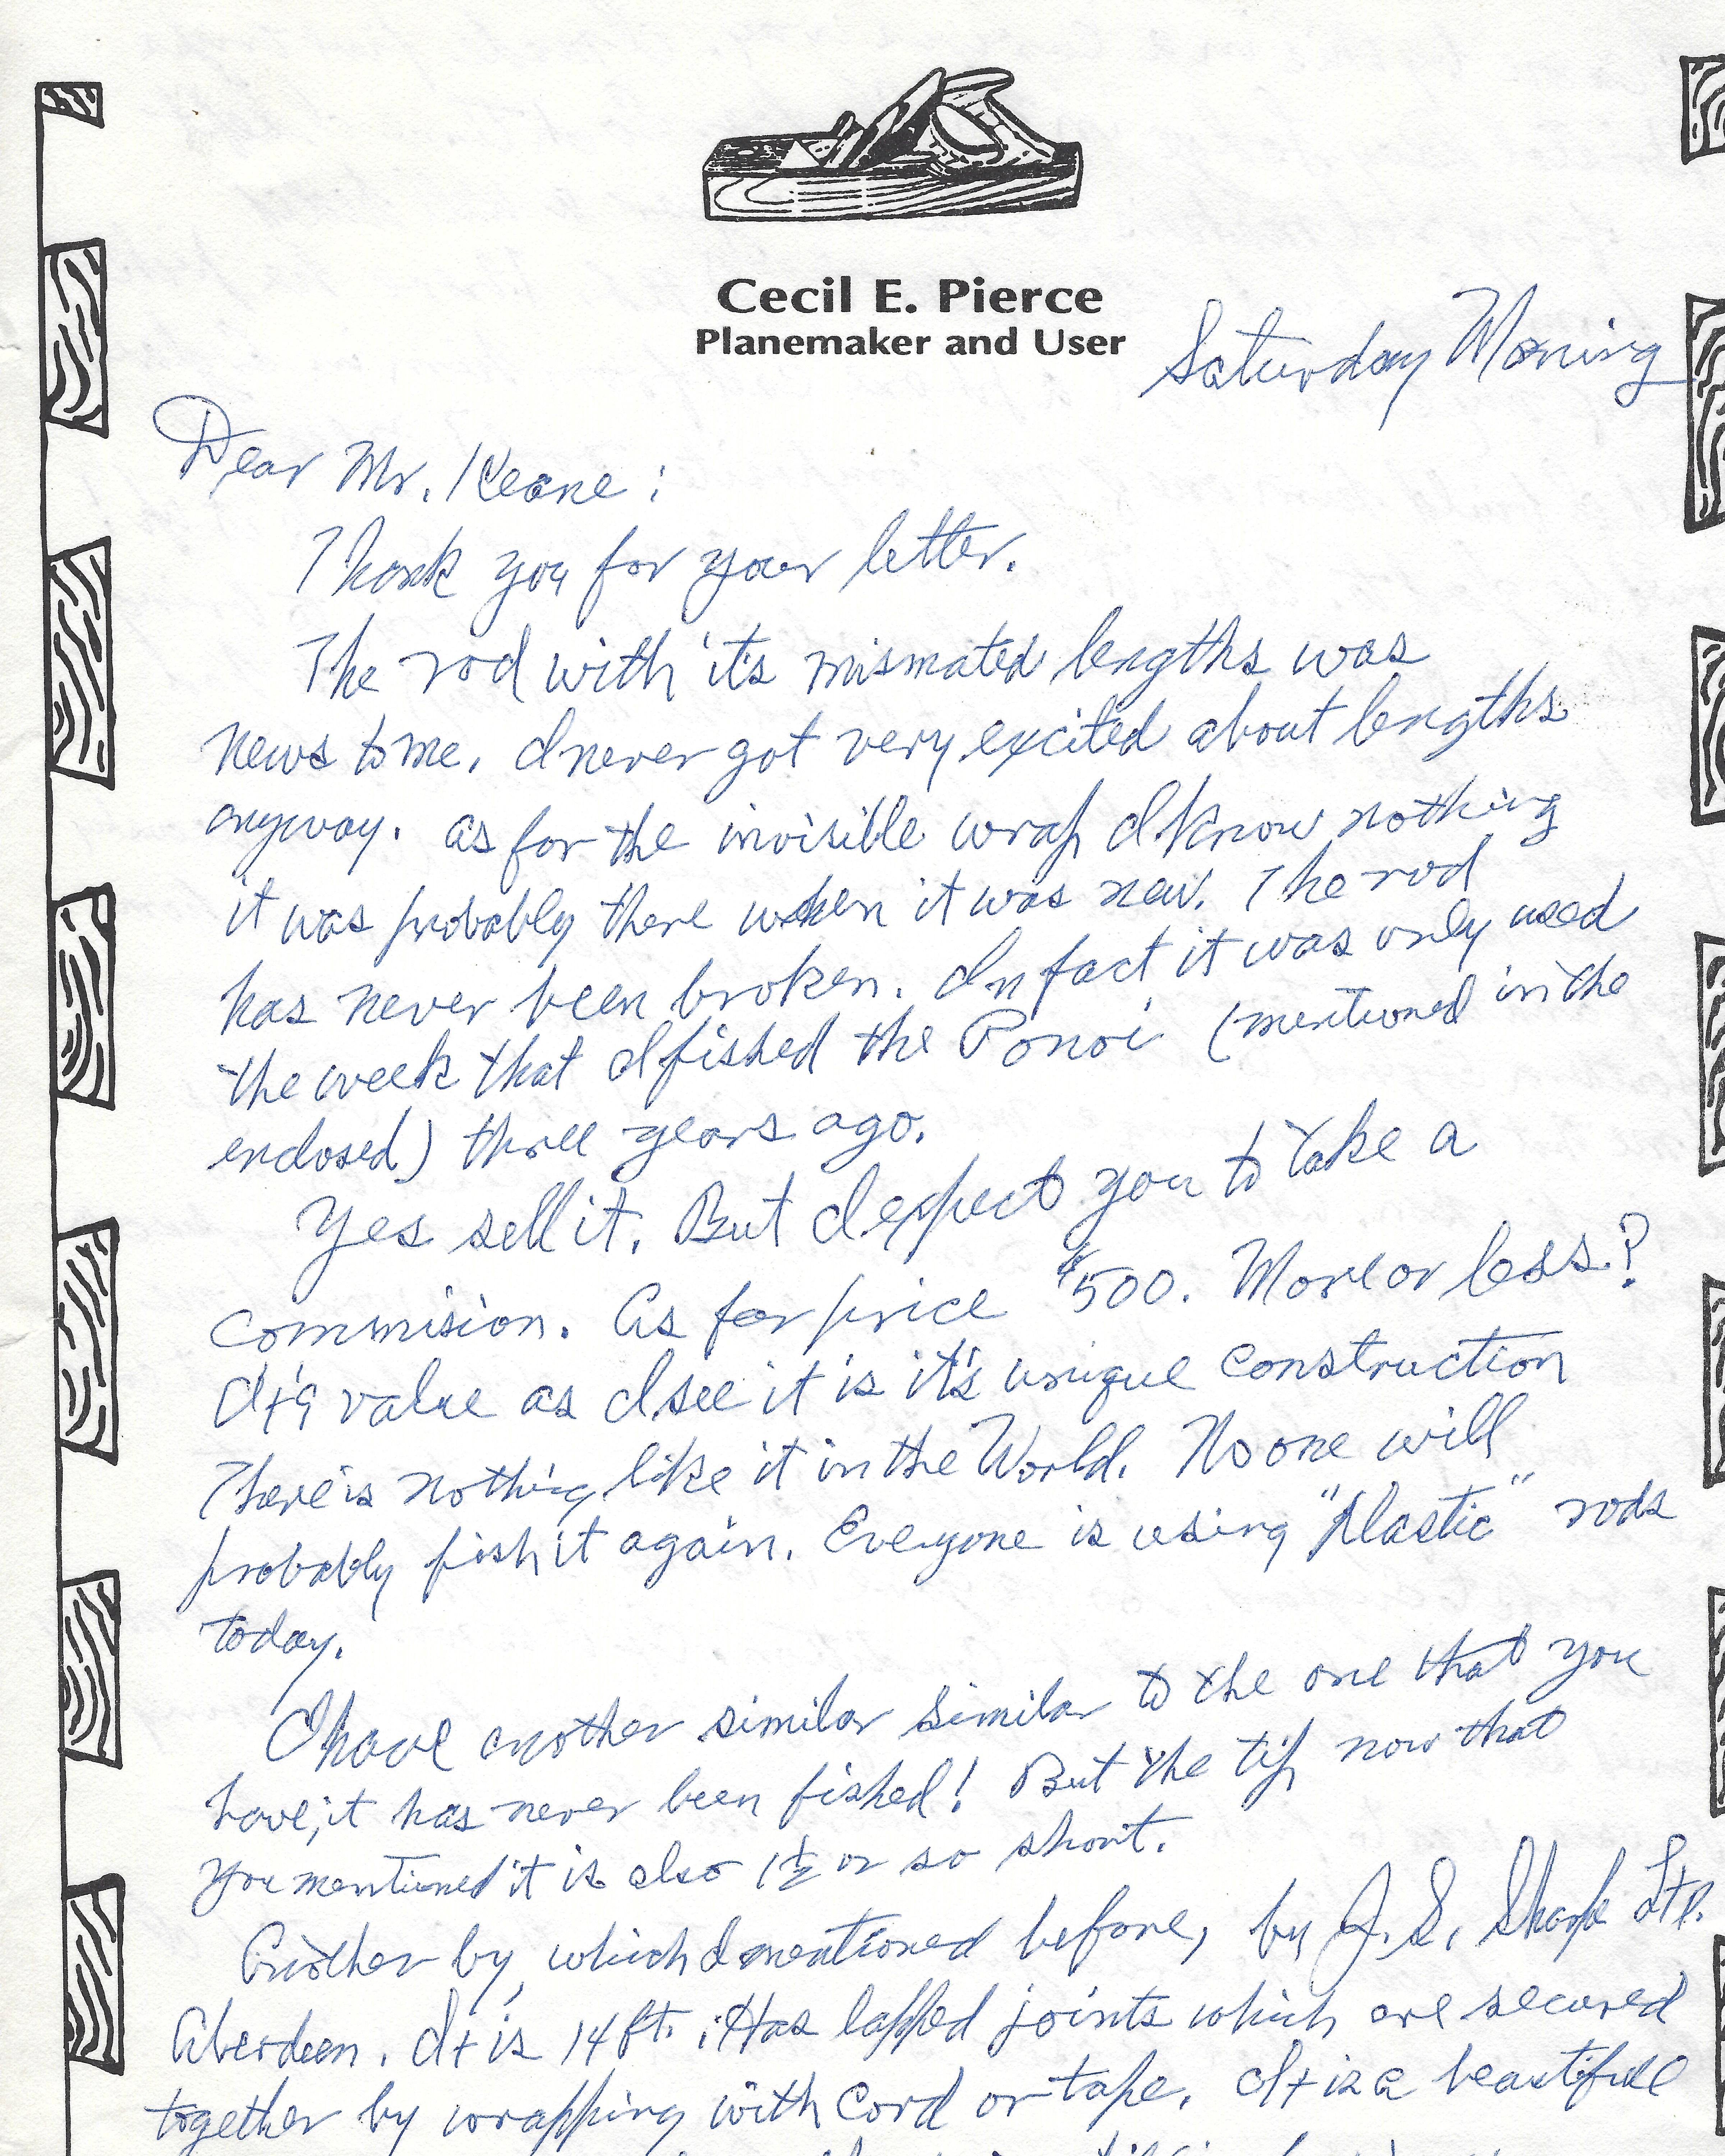 Cecil E. Pierce
Planemaker and User
Saturday Morning
Dear Mr. Keane:
Thank you for your letter.
The rod with it's mismated lengths was
news to me. I never got very excited about lengths
anyway. As for the invisible wrap I know nothing
it was probably there when it was new. The rod
has never been broken. In fact it was only used
the week that I fished the Ponoi (mentioned in the
enclosed) three years ago.
Yes sell it. But I expect you to take a
commision. As for price $500. More or less?
It's value as I see it is it's unique construction
There is nothing like it in the World. No one will
probably fish it again. Everyone is using "Plastic" rods
today.
I have another similar similar to the one that you
have, it has never been fished! But the tip now that
you mentioned it is also 1½ or so short.
Another by, which I mentioned before, by J. S. Sharpe Ltd.
Aberdeen. It is 14 ft. Has lapped joints which are secured
together by wrapping with cord or tape. It is a beautifull